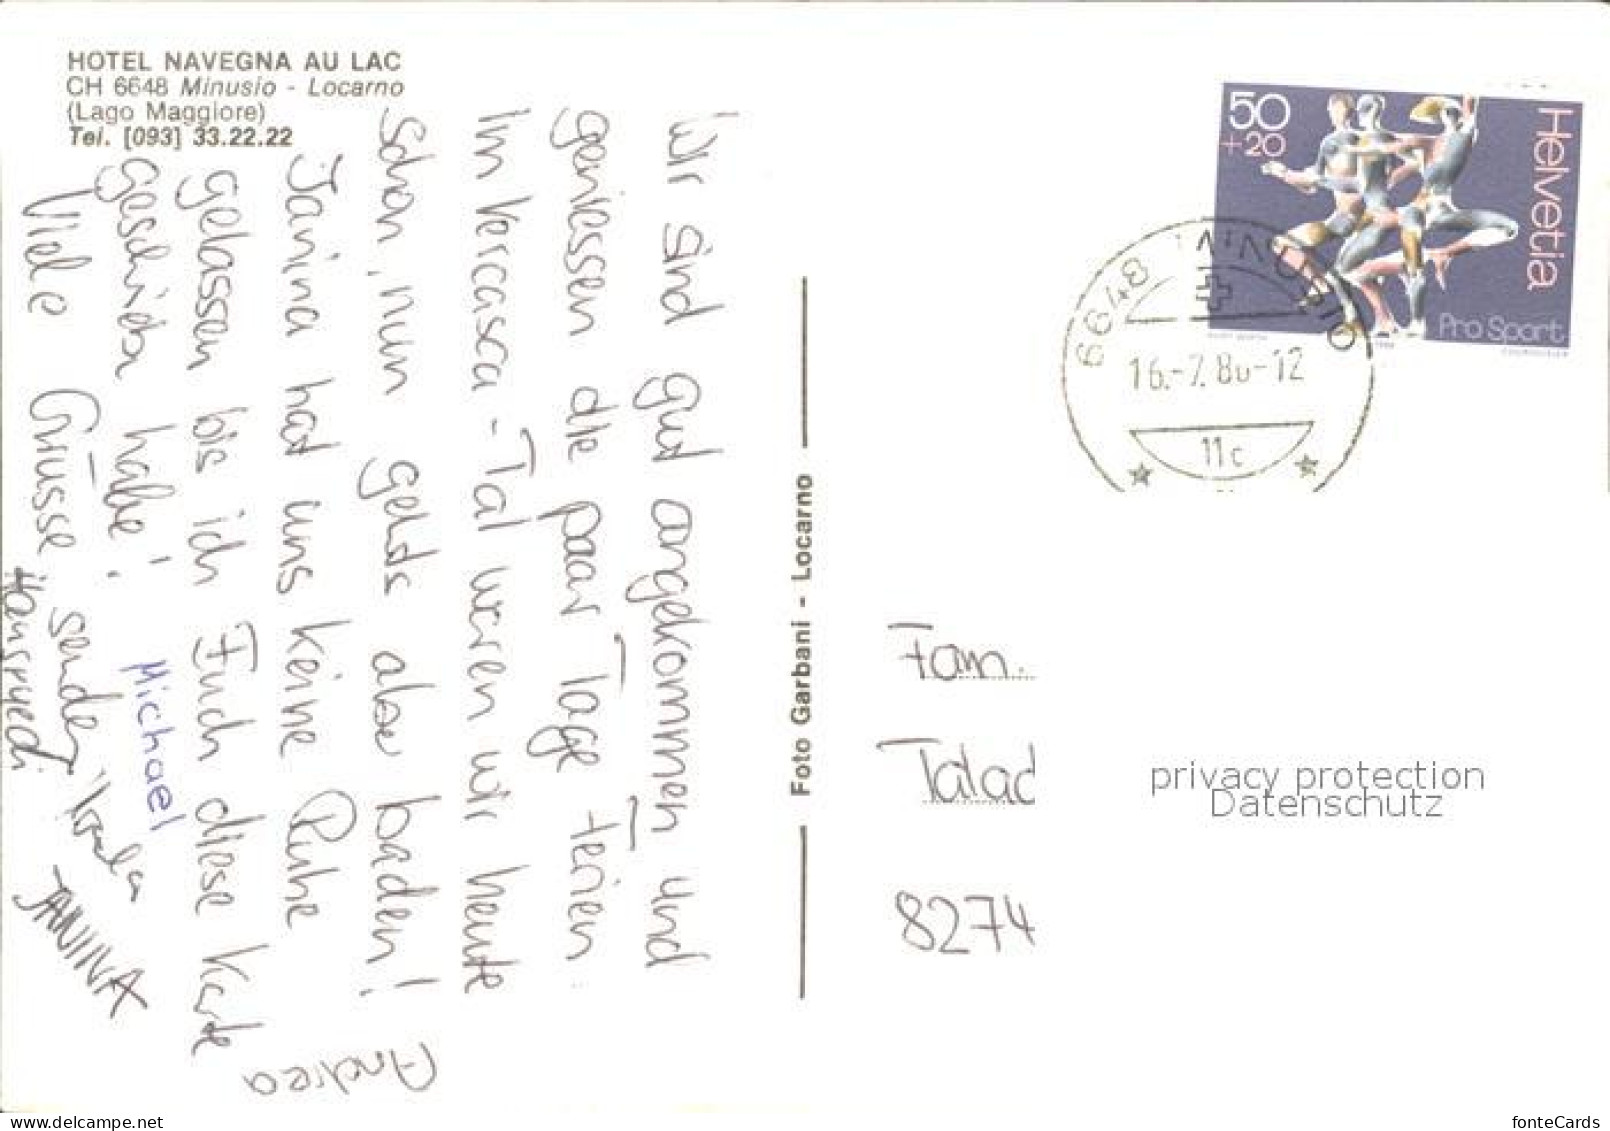 HOTEL NAVEGNA AU LAC
CH 6648 Minusio - Locarno
(Lago Maggiore)
Tel. [093] 33.22.22
Wir sind gut angekommen und
geniessen die paar Tage Ferien.
Im Vercasca-Tal waren wir heute
schon, nun gehts aber baden!
Janina hat uns keine Ruhe
gelassen bis ich Euch diese Karte
geschrieben habe!
Viele Grüsse senden
Hansruedi
Michael
JANINA
Andrea
Foto Garbani - Locarno
50
+20
Helvetia
Pro Sport
6648 MINUSIO
16.-7.86-12
11c
Fam.
Talad
8274
privacy protection
Datenschutz
www.delcampe.net
fonteCards